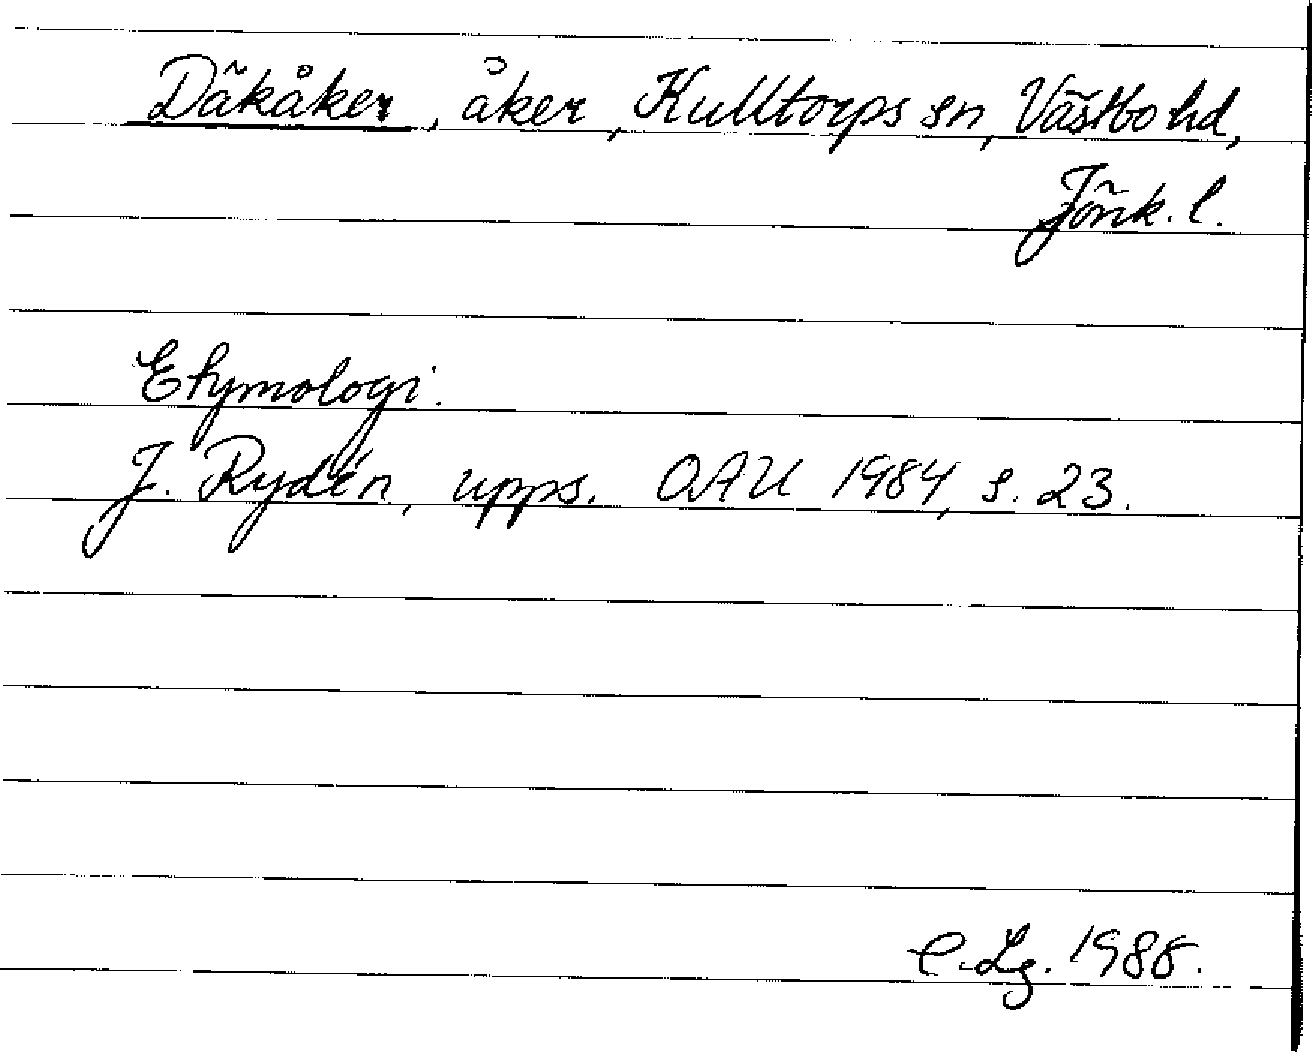 Däkåker, åker, Kulltorps sn, Västbo hd,
Jönk. l.
Etymologi.
J. Rydén, upps. OAU 1984, s. 23.
C. Lg. 1988.